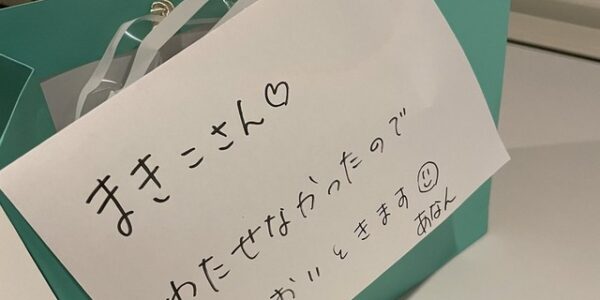 まきこさん♡
わたせなかったので
おいときます☺
あなん